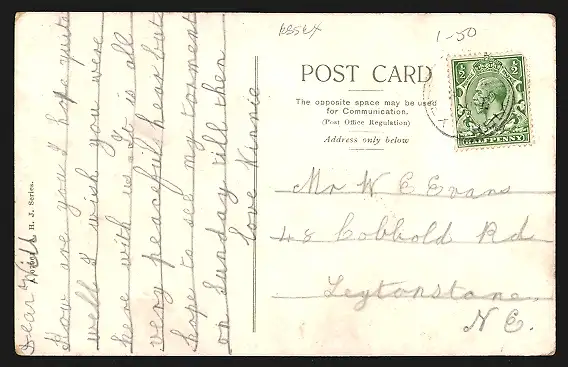 Dear Will
How are you I hope quite
well I wish you were
here with us. It is all
very peaceful hear but
hope to see my torment
on Sunday till then
love Winnie
H. J. Series.
1-50
POST CARD
The opposite space may be used
for Communication.
(Post Office Regulation)
Address only below
HALFPENNY
Mr W E Evans
48 Cobbold Rd
Leytonstone
N.E.